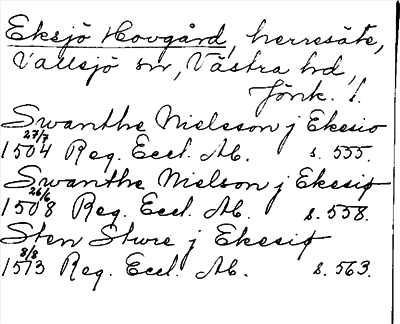 Eksjö Hovgård, herresäte,
Vallsjö sn, Västra hd,
Jönk. l.
Swanthe Nielsson j Ekesio
27/7
1504 Reg. Eccl. Ab. s. 555.
Swanthe Nielson j Ekesiø
26/6
1508 Reg. Eccl. Ab. s. 558.
Sten Sture j Ekesiø
8/8
1513 Reg. Eccl. Ab. s. 563.